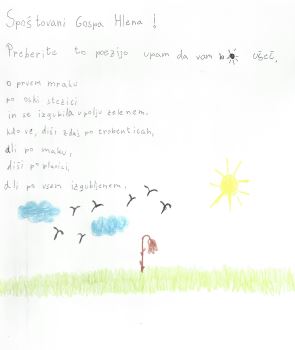 Spoštovani Gospa Hlena !
Preberite to poezijo upam da vam bo všeč.
o prvem mraku
po ozki stezici
in se izgubila v polju zelenem.
kdo ve, diši zdaj po trobenticah,
ali po maku,
diši po plavici,
ali po vsem izgubljenem.